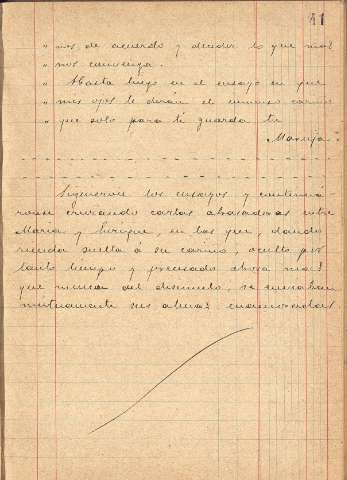 41
" nos de acuerdo y decidir lo que más
" nos convenga.
" Hasta luego en el ensayo en que
" mis ojos te dirán el inmenso cariño
" que solo para ti guarda tu
Maruja."
Siguieron los ensayos y continua-
ronse cruzando cartas abrasadoras entre
María y Enrique, en las que, dando
rienda suelta á su cariño, oculto por
tanto tiempo y precisado ahora más
que nunca del disimulo, se
mutuamente sus almas enamoradas.